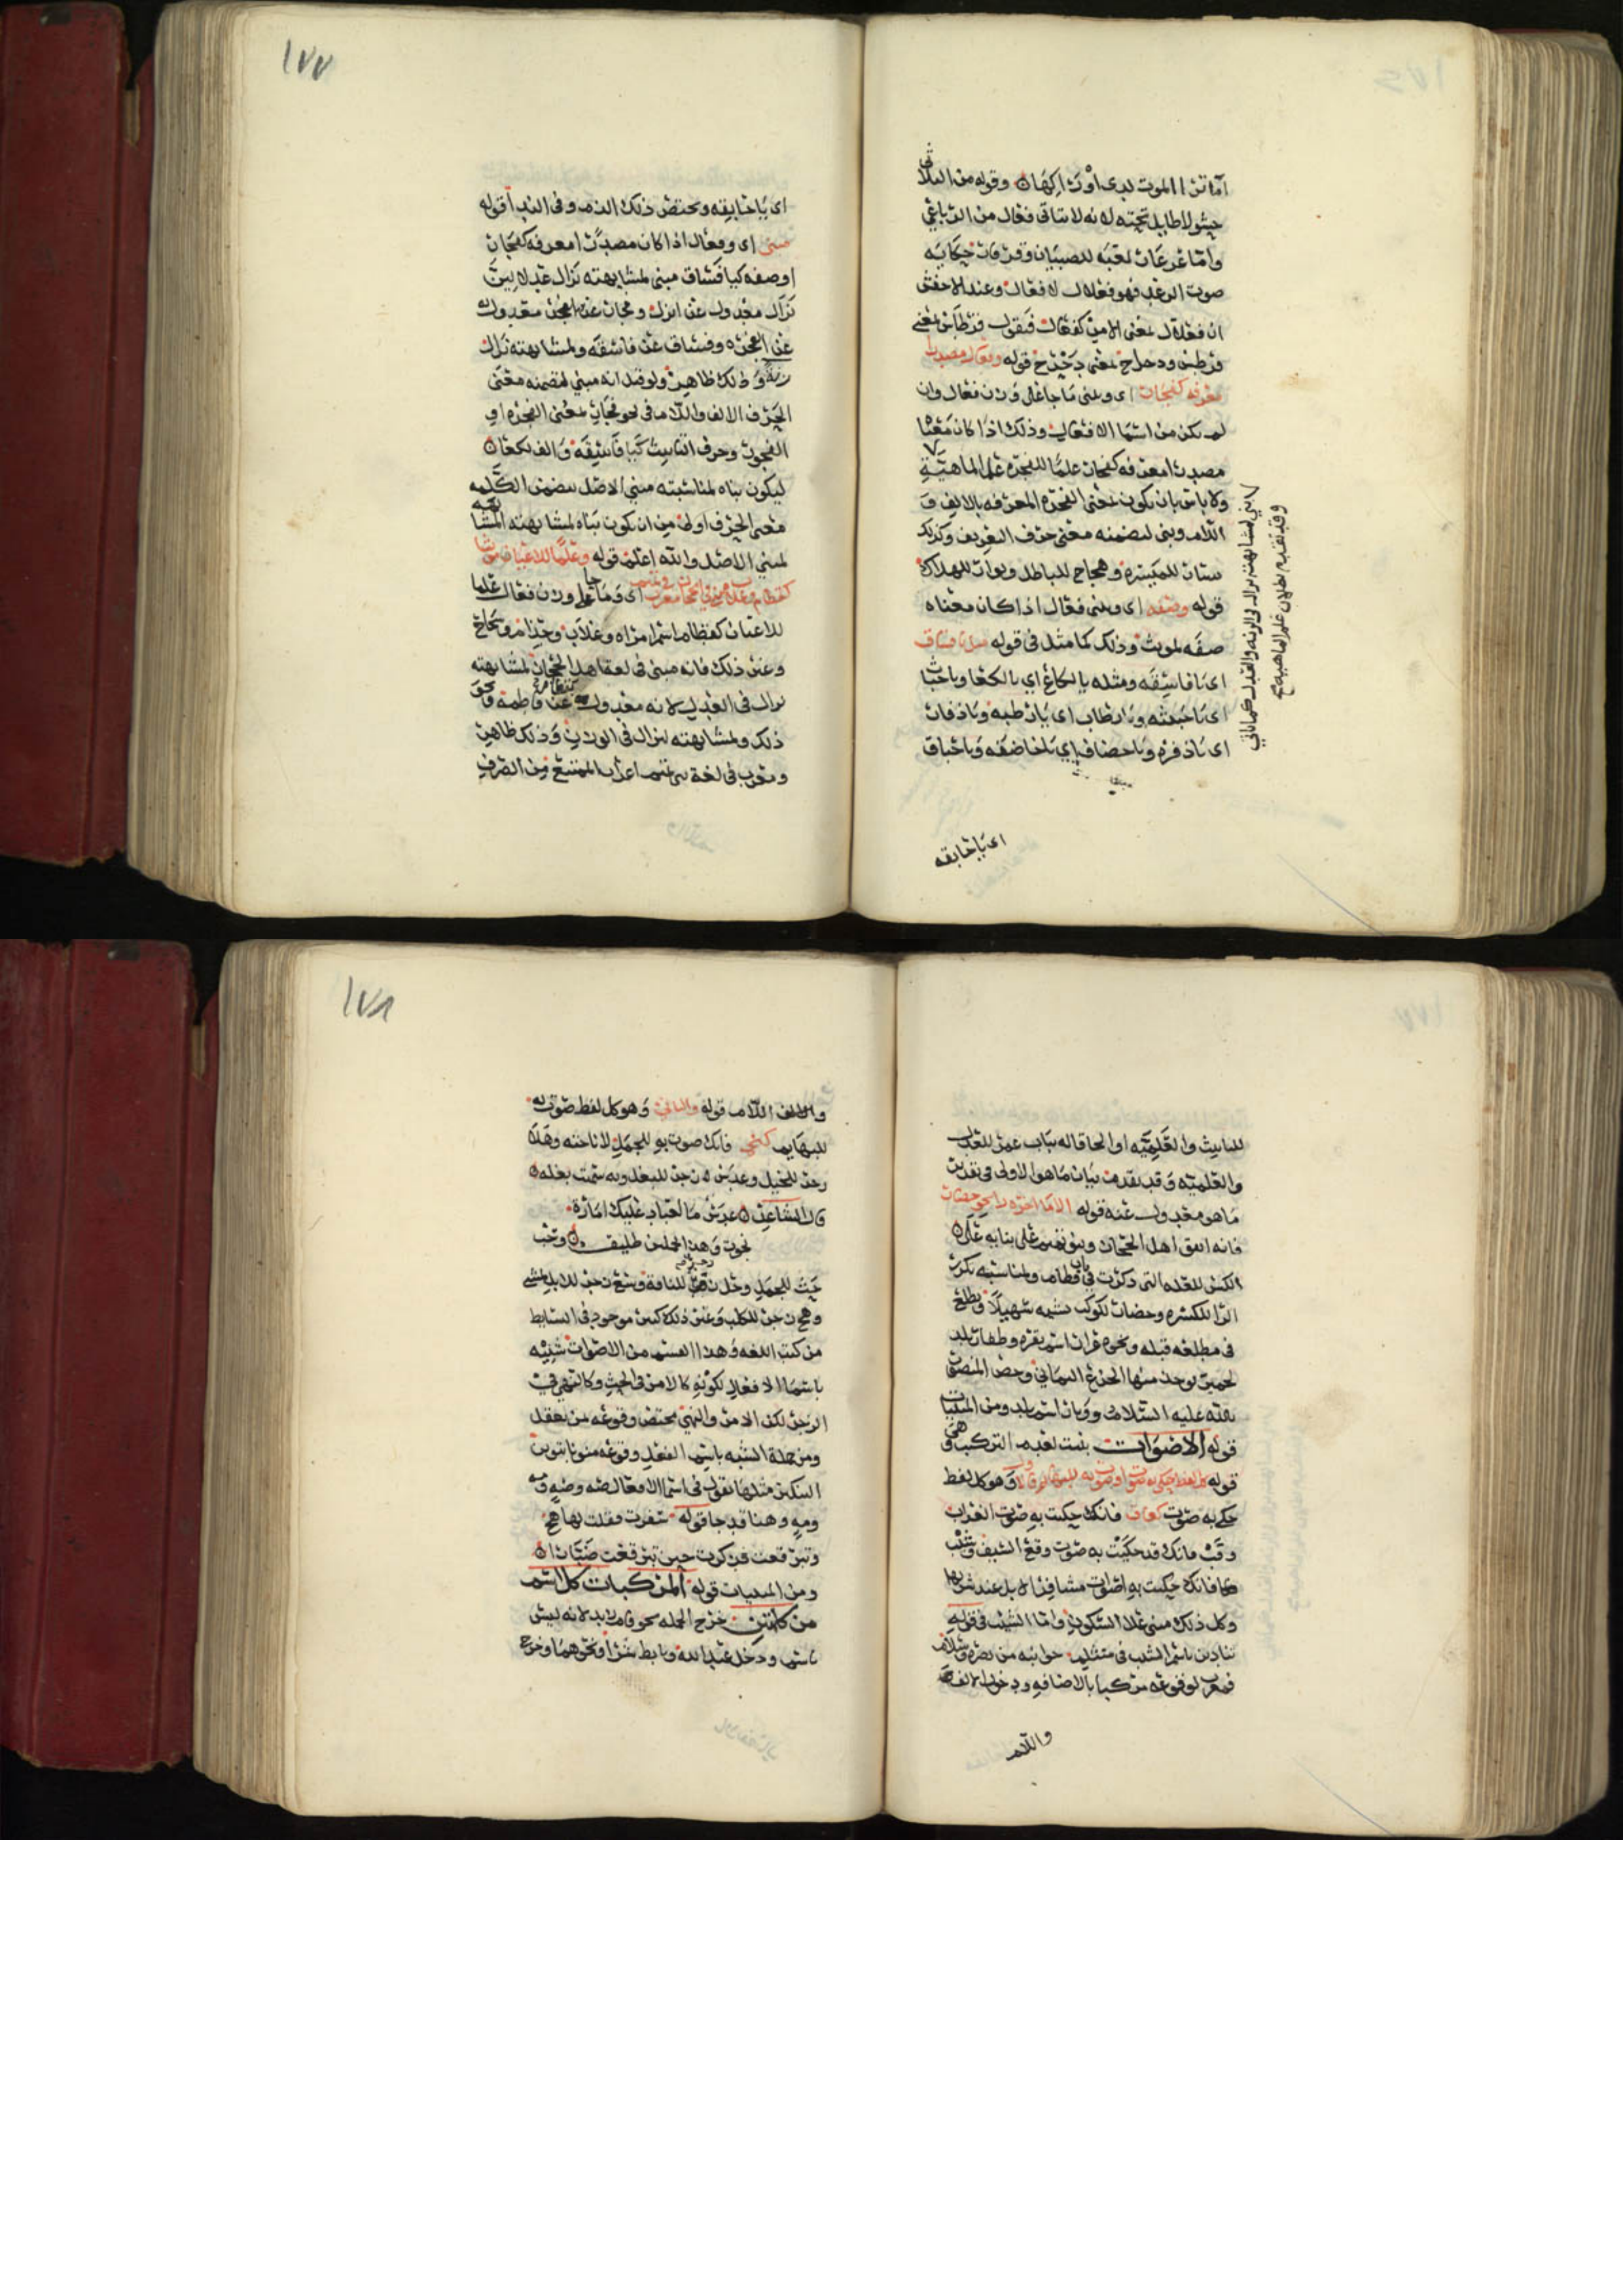 اما ترا الموت لدى اوراكها ۞ وقوله من الثلاثي
حشو لا طايل تحته لانه لا يتاتى فعال من الرباعي
واما عرعار لعبة للصبيان وقرقار حكاية
صوت الرعد فهو فعلال لا فعال وعند الاخفش
ان فعلال بمعنى الامر كفعال فيقول قرطاس بمعنى
قرطس ودحراج بمعنى دحرج قوله وفعال مصدرا
معرفة كفجار اي وبنى ما جا على وزن فعال وان
لم يكن من اسما الافعال وذلك اذا كان معنا
مصدرا معرفة كفجار علما للفجرة على الماهية
ولا باس بان يكون بمعنى الفجرة المعرفة بالالف و
اللام وبنى لتضمنه معنى حرف التعريف وكذلك
يسار للميسرة وهجاج للباطل وبوار للهلاك
قوله وصفة اي وبنى فعال اذا كان معناه
صفة لمونث وذلك كما مثل في قوله مثل يا فساق
اي يا فاسقة ومثله يا لكاع اي يا لكعا ويا خباث
اي يا خبيثة ويا رطاب اي يا رطبة ويا ذفار
اي يا ذفرة ويا خضاف اي يا خاضفة ويا خباق
بنى لمشابهته نزال في الزنة والعدل كما ياتي
وقد تقدم بطلان علم الماهية صح
اي يا خابقة
١٧٧
اي يا خابقة ويختص ذلك الذم وفي الندا قوله
مبنى اي وفعال اذا كان مصدرا معرفة كفجار
او صفة كيا فساق مبنى لمشابهته نزال عدلا بين
نزال معدول عن انزل وفجار عن الفجر معدول
عن الفجرة وفساق عن فاسقة ولمشابهته نزال
زنة وذلك ظاهر ولو قيل انه مبنى لتضمنه معنى
الحرف الالف واللام في نحو فجار بمعنى الفجرة او
الفجور وحرف التانيث كيا فاسقة والف لكعا ۞
ليكون بناه لمناسبته مبنى الاصل بتضمن الكلمة
معنى الحرف اولى من ان يكون بناه لمشابهته المشابه
لمبنى الاصل والله اعلم قوله وعلما للاعيان مونثا
كقطام وغلاب مبنى في الحجاز معرب في تميم اي وما جا على وزن فعال علما
للاعيان كقطام اسم امراة وغلاب وحذام وسجاح
وغير ذلك فانه مبنى في لغة اهل الحجاز لمشابهته
نزال في العدل لانه معدول عن فاطمة ونحو
ذلك ولمشابهته لنزال في الوزن وذلك ظاهر
ومعرب في لغة بني تميم اعراب الممتنع من الصرف
للتانيث والعلمية او الحاقا له بباب عمر للعدل
والعلمية وقد تقدم بيان ما هو الاولى في تقدير
ما هو معدول عنه قوله الا ما اخره را نحو حضار
فانه اتفق اهل الحجاز وبنو تميم على بنايه على ۞
الكسر للعلة التي ذكرت في باب قطام ولمناسبة تكرير
الرا للكسرة وحضار لكوكب يشبه سهيلا ويطلع
في مطلعه قبله ونحوه عرار اسم بقرة وظفار بلد
لحمير يوجد منها الجزع اليماني وحصن المنصور
بالله عليه السلام ووبار اسم بلد ومن المبنيات
قوله الاصوات بنيت لعدم التركيب وهي
قوله كل لفظ حكى به صوت او صوت به للبهايم فالاول وهو كل لفظ
حكى به صوت كغاق فانك حكيت به صوت الغراب
وقب فانك قد حكيت به صوت وقع السيف وشيب
فانك حكيت به اصوات مشافر الابل عند شربها
وكل ذلك مبنى على السكون واما الشيب في قوله
تنادين باسم الشيب في متثلم جوانبه من بصرة وسلام
فمعرب لوقوعه مركبا بالاضافة ودخول الالف
واللام
١٧٨
والالف اللام قوله والثاني وهو كل لفظ صوت به
للبهايم كنخ فانك صوت به للجمل لاناخته وهلا
زجر للخيل وعدس زجر للبغل وبه سميت بغلة ۞
قال الشاعر ۞ عدس ما لعباد عليك امارة
نجوت وهذا تحملين طليق ۞ وحب
حبث للجمل وحل زجر للناقة وسع زجر للابل
وهج زجر للكلب وغير ذلك كثير موجود في البسايط
من كتب اللغة وهذا القسم من الاصوات شبيه
باسما الافعال لكونه كالامر في الحث وكالنهي في
الزجر لكن الامر والنهي مختص وقوعه بمن يعقل
ومن جملة الشبه باسم الفعل وقوعه منونا بتنوين
التنكير مثلها تقول في اسما الافعال صه وصه ومه
ومه وهنا قد جا قوله سفرت فقلت لها هج
وتبرقعت فذكرت حين تبرقعت ضبارا ۞
ومن المبنيات قوله المركبات كل اسم
من كلمتين خرج الجملة نحو قام زيد لانه ليس
باسم ودخل عبد الله وتابط شرا ونحوهما وخرج